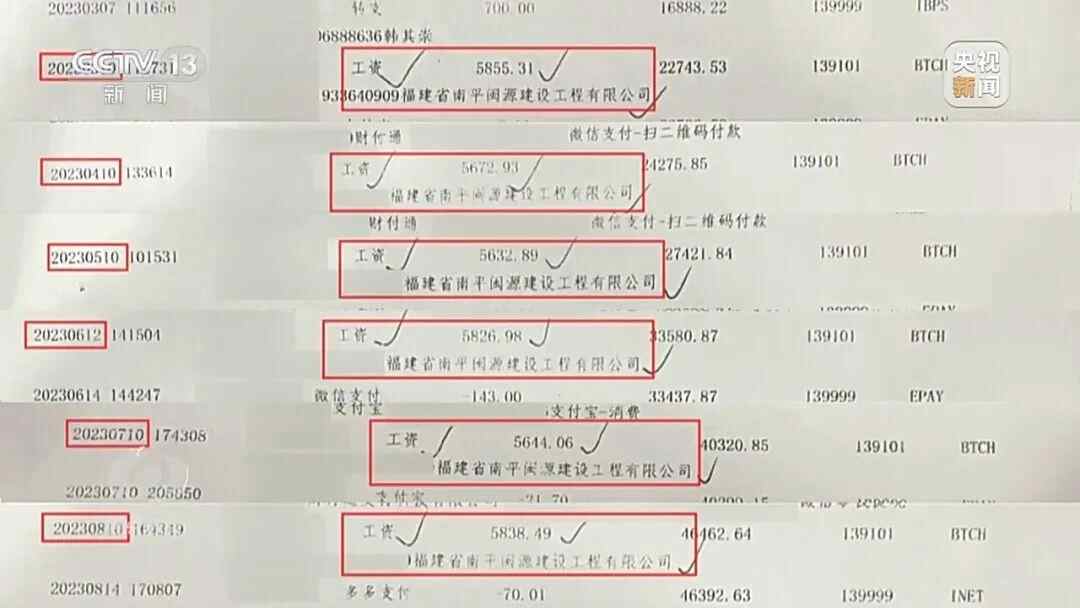 20230307 111656 转支 700.00 16888.22 139999 IBPS
06888636韩其
CCTV 13
新闻
央视
新闻
工资 5855.31 22743.53 139101 BTCH
933640909福建省南平闽源建设工程有限公司
财付通 微信支付-扫二维码付款
20230410 133614 工资 5672.93 24275.85 139101 BTCH
福建省南平闽源建设工程有限公司
财付通 微信支付-扫二维码付款
20230510 101531 工资 5632.89 27421.84 139101 BTCH
福建省南平闽源建设工程有限公司
20230612 141504 工资 5826.98 33580.87 139101 BTCH
福建省南平闽源建设工程有限公司
20230614 144247 微信支付 -143.00 33437.87 139999 EPAY
支付宝 支付宝-消费
20230710 174308 工资 5644.06 40320.85 139101 BTCH
福建省南平闽源建设工程有限公司
20230710 205850 -21.70
20230810 164349 工资 5838.49 46462.64 139101 BTCH
福建省南平闽源建设工程有限公司
20230814 170807 多多支付 -70.01 46392.63 139999 INET